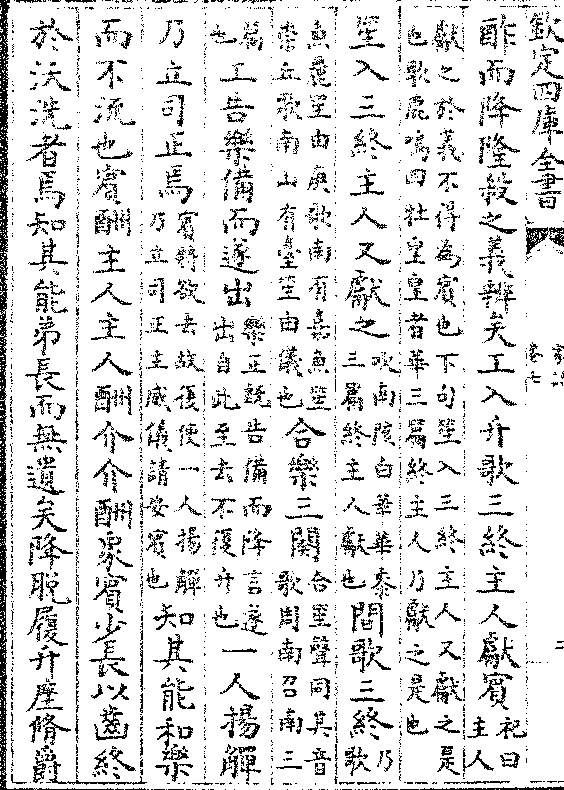 欽定四庫全書
卷七
二
酢而降隆殺之義辨矣工入升歌三終主人獻賓記曰主人
獻之於義不得為賓也下句笙入三終主人又獻之是
也歌鹿鳴四牡皇皇者華三篇終主人乃獻之是也
笙入三終主人又獻之吹南陔白華華黍三篇終主人獻也間歌三終乃歌
魚麗笙由庚歌南有嘉魚笙崇丘歌南山有臺笙由儀也合樂三闋合笙聲同其音歌周南召南三
篇也工告樂備而遂出樂正既告備而降言遂出自此至去不復升也一人揚觶
乃立司正焉賓將欲去故復使一人揚觶乃立司正主威儀請安賓也知其能和樂
而不流也賓酬主人主人酬介介酬眾賓少長以齒終
於沃洗者焉知其能弟長而無遺矣降脫屨升座脩爵